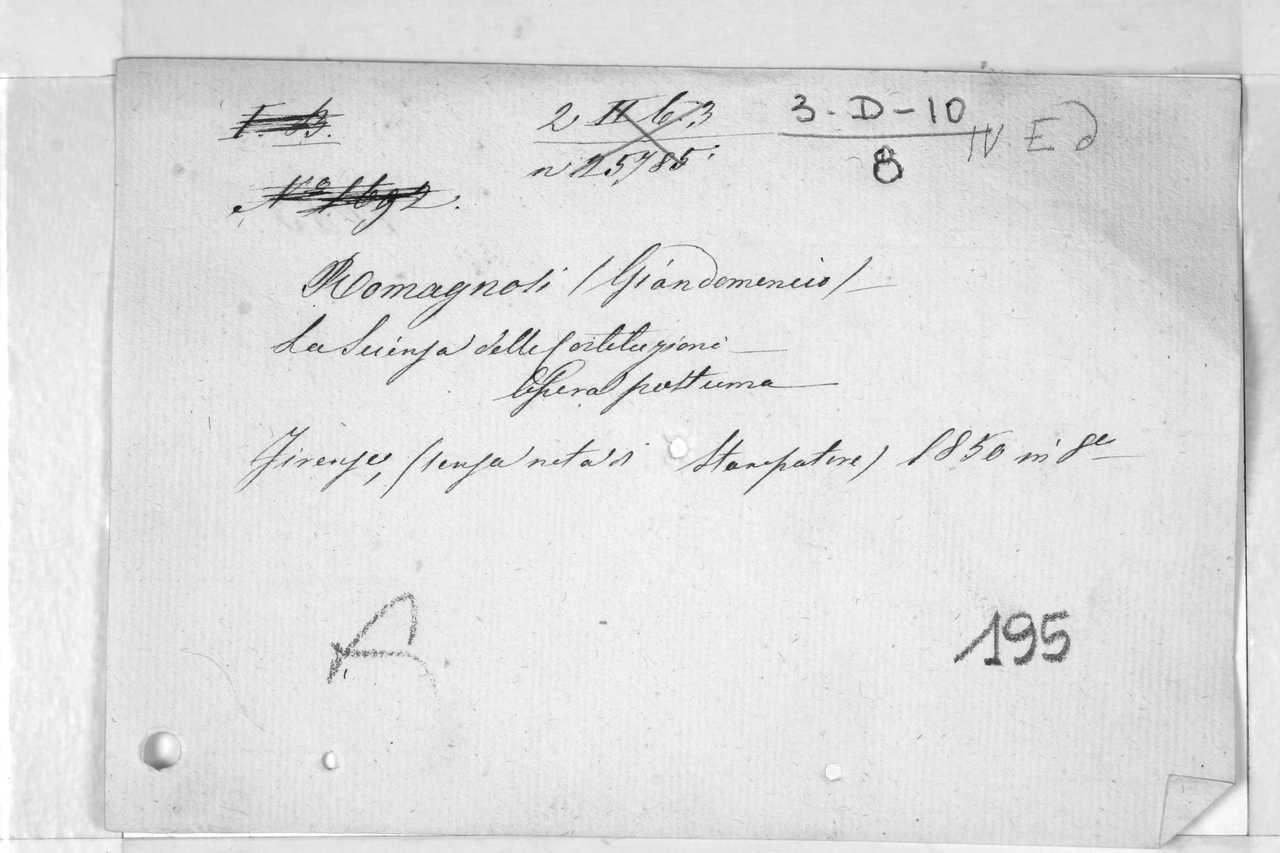 2 II 6 3
3-D-10
n 25785
8
IV Ed
Nº 1692.
Romagnosi (Giandomenico)
La Scienza delle Costituzioni
Opera postuma
Firenze, (senza nota di Stampatore) 1850 in 8º
A
195